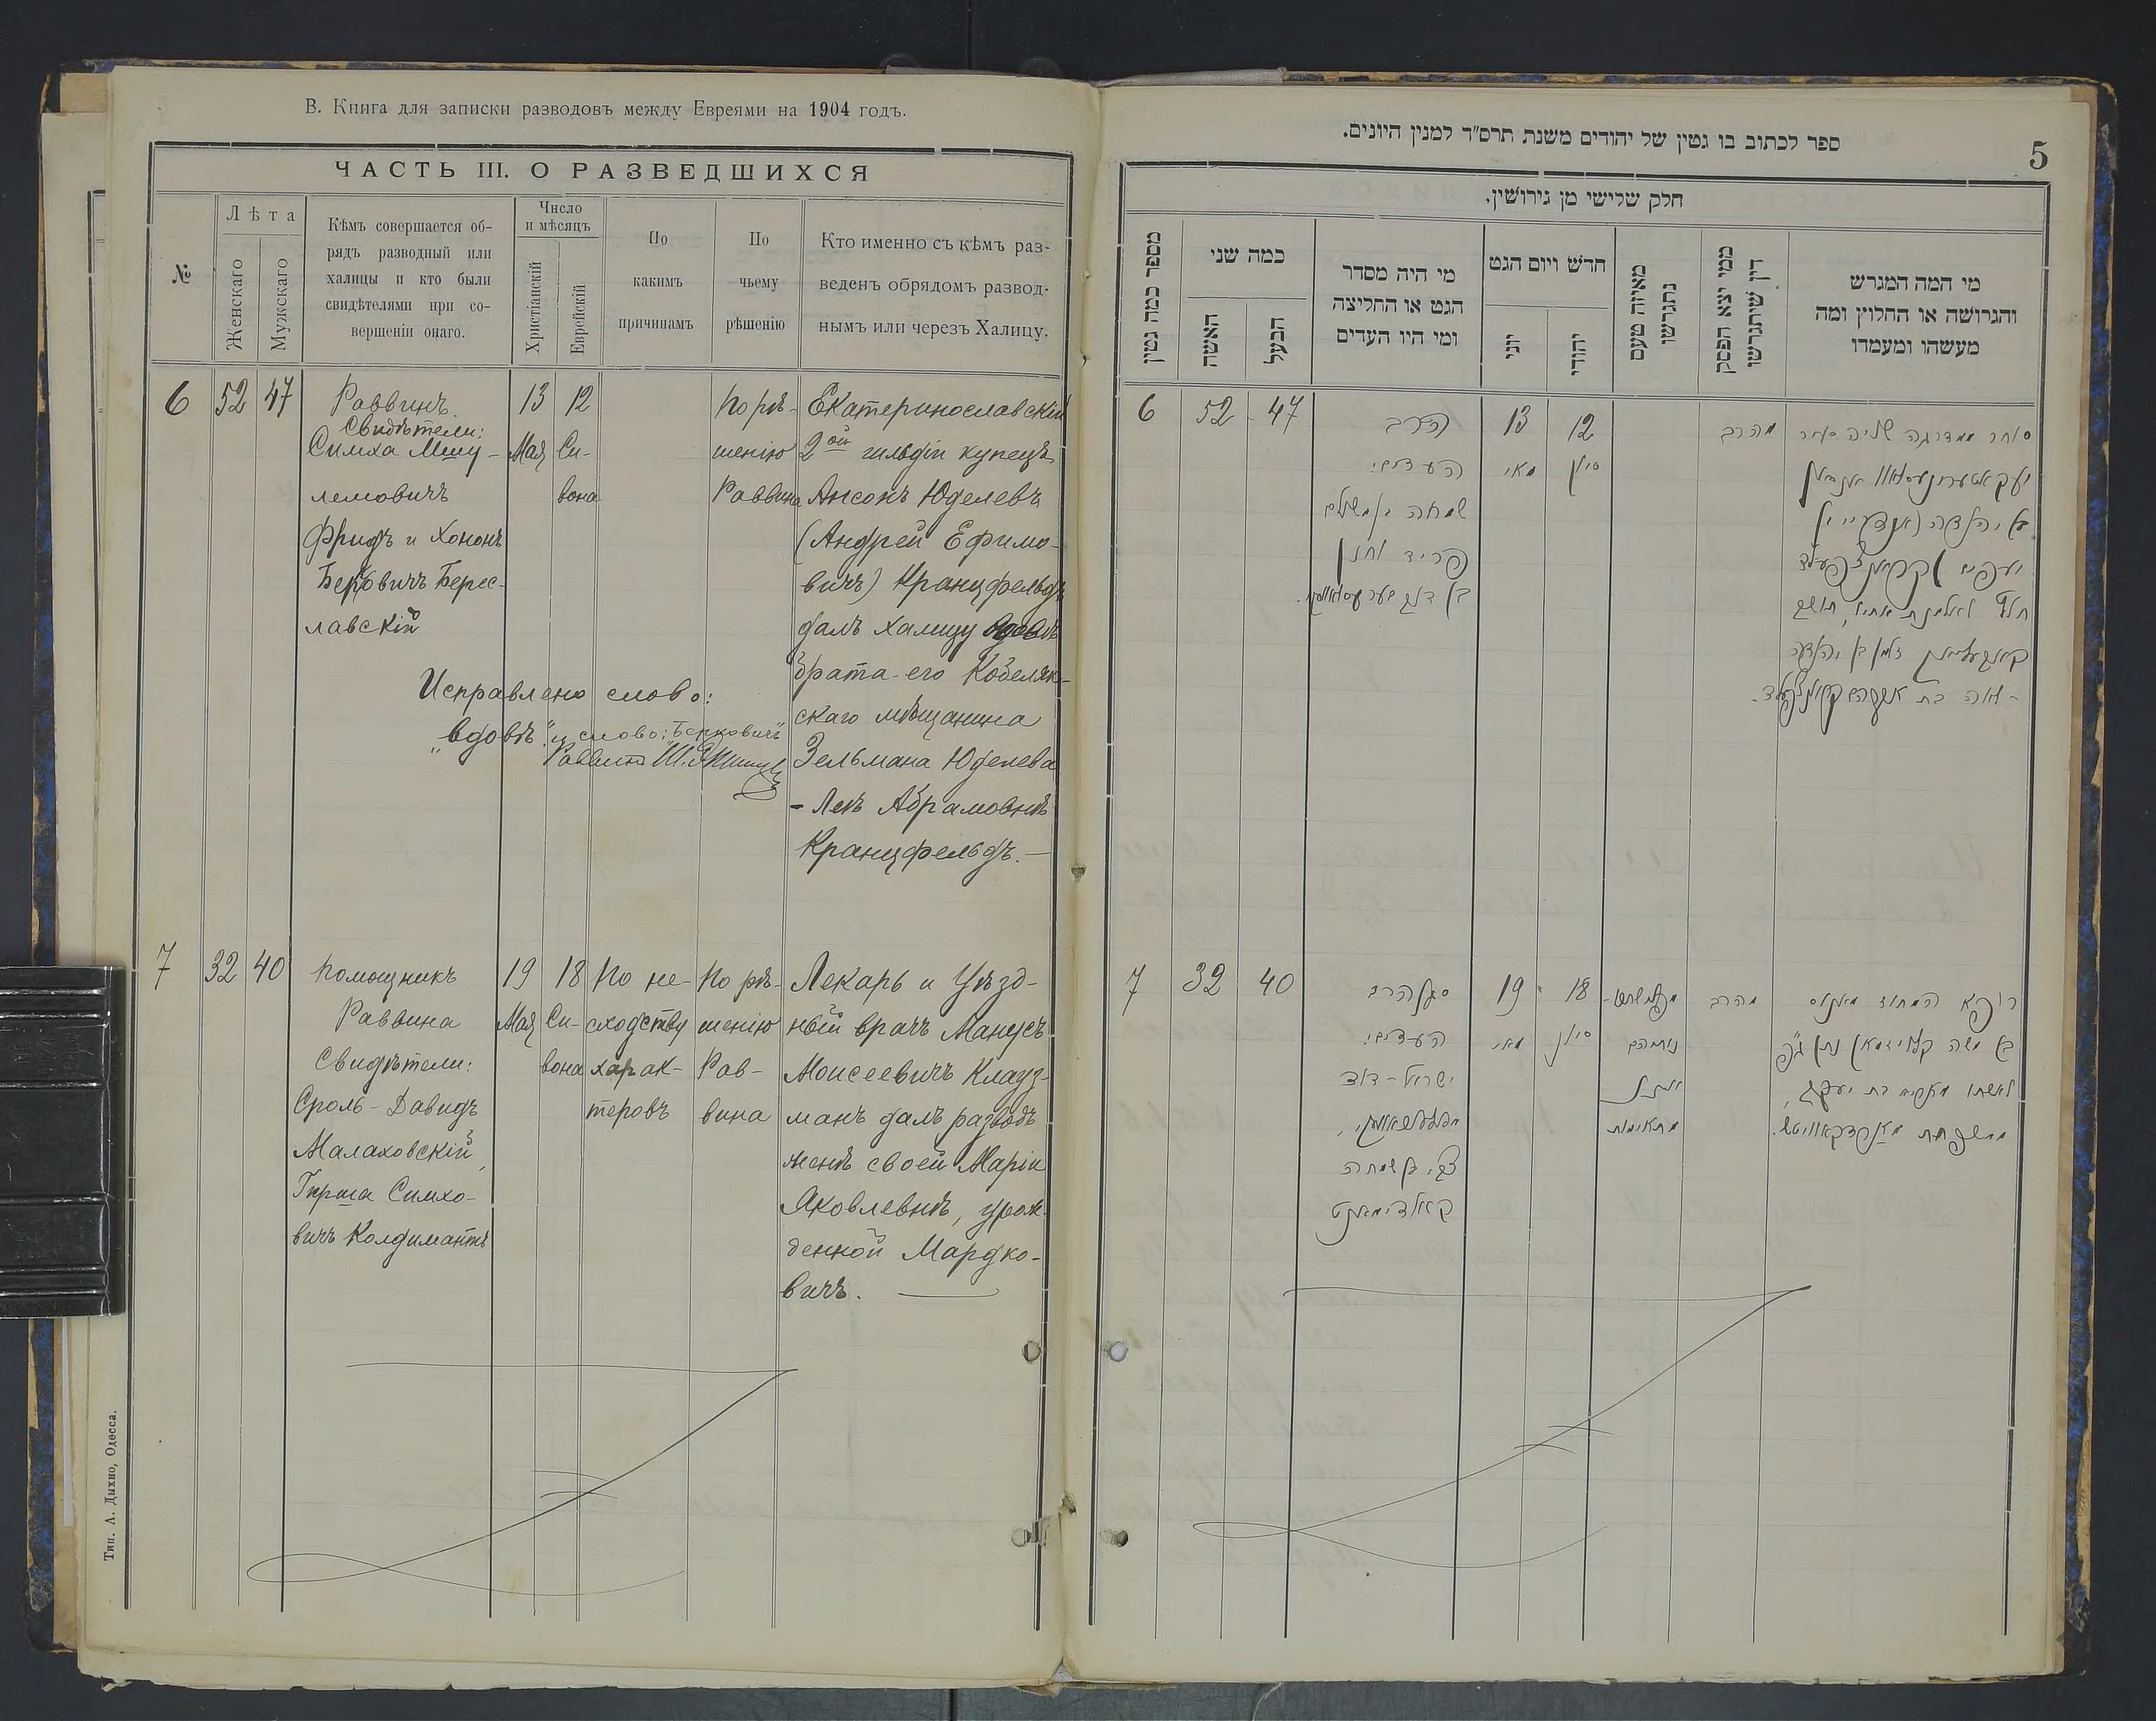 В. Книга для записки разводовъ между Евреями на 1904 годъ.
ЧАСТЬ III. О РАЗВЕДШИХСЯ
№
Лѣта
Женскаго
Мужскаго
Кѣмъ совершается об-
рядъ разводный или
халицы и кто были
свидѣтелями при со-
вершеніи онаго.
Число
и мѣсяцъ
Христіанскій
Еврейскій
По
какимъ
причинамъ
По
чьему
рѣшенію
Кто именно съ кѣмъ раз-
веденъ обрядомъ развод-
нымъ или черезъ Халицу.
6
52
47
Раввинъ.
Свидѣтели:
Симха Мешу-
лемовичъ
Фридъ и Хононъ
Берковичъ Берес-
лавскій
13
Мая
12
Си-
вона
По рѣ-
шенію
Раввина
Екатеринославскій
2ой гильдіи купецъ
Ансонъ Юделевъ
(Андрей Ефимо-
вичъ) Кранцфельдъ
далъ халицу вдовѣ
брата его Кобеляк-
скаго мѣщанина
Зельмана Юделева
- Леѣ Абрамовнѣ
Кранцфельдъ. —
Исправлено слово:
„вдовѣ" и слово: „Берковичъ"
Раввинъ
7
32
40
Помощникъ
Раввина
Свидѣтели:
Сроль-Давидъ
Малаховскій,
Гирша Симхо-
вичъ Колдимантъ
19
Мая
18
Си-
вона
По не-
сходству
харак-
теровъ
По рѣ-
шенію
Рав-
вина
Лекарь и Уѣзд-
ный врачъ Манусъ
Моисеевичъ Клауз-
манъ далъ разводъ
женѣ своей Маріи
Яковлевнѣ, урож-
денной Мардко-
вичъ. —
Тип. А. Дыхно, Одесса.
ספר לכתוב בו גטין של יהודים משנת תרס״ד למנין היונים.
5
חלק שלישי מן גירושין.
מספר כמה גטין
כמה שני
האישה
הבעל
מי היה מסדר
הגט או החליצה
ומי היו העדים
חדש ויום הגט
יוני
יהודי
מאיזה טעם
נתגרשו
ממי יצא הפסק
דין שיתגרשו
מי המה המגרש
והגרושה או החלוץ ומה
מעשהו ומעמדו
6
52
47
הרב
העדים:
שמחה בן משולם
פריד וחנן
13
מאי
12
סיון
מהרב
7
32
40
סגן הרב
העדים:
ישראל-דוד
צבי בן שמחה
קאלדימאנט
19
מאי
18
סיון
מהרב
רופא המחוז מאנוס
בן משה קלויזמאן נתן ג״פ
לאשתו מאריא בת יעקב,
ממשפחת מארדקאוויטש.